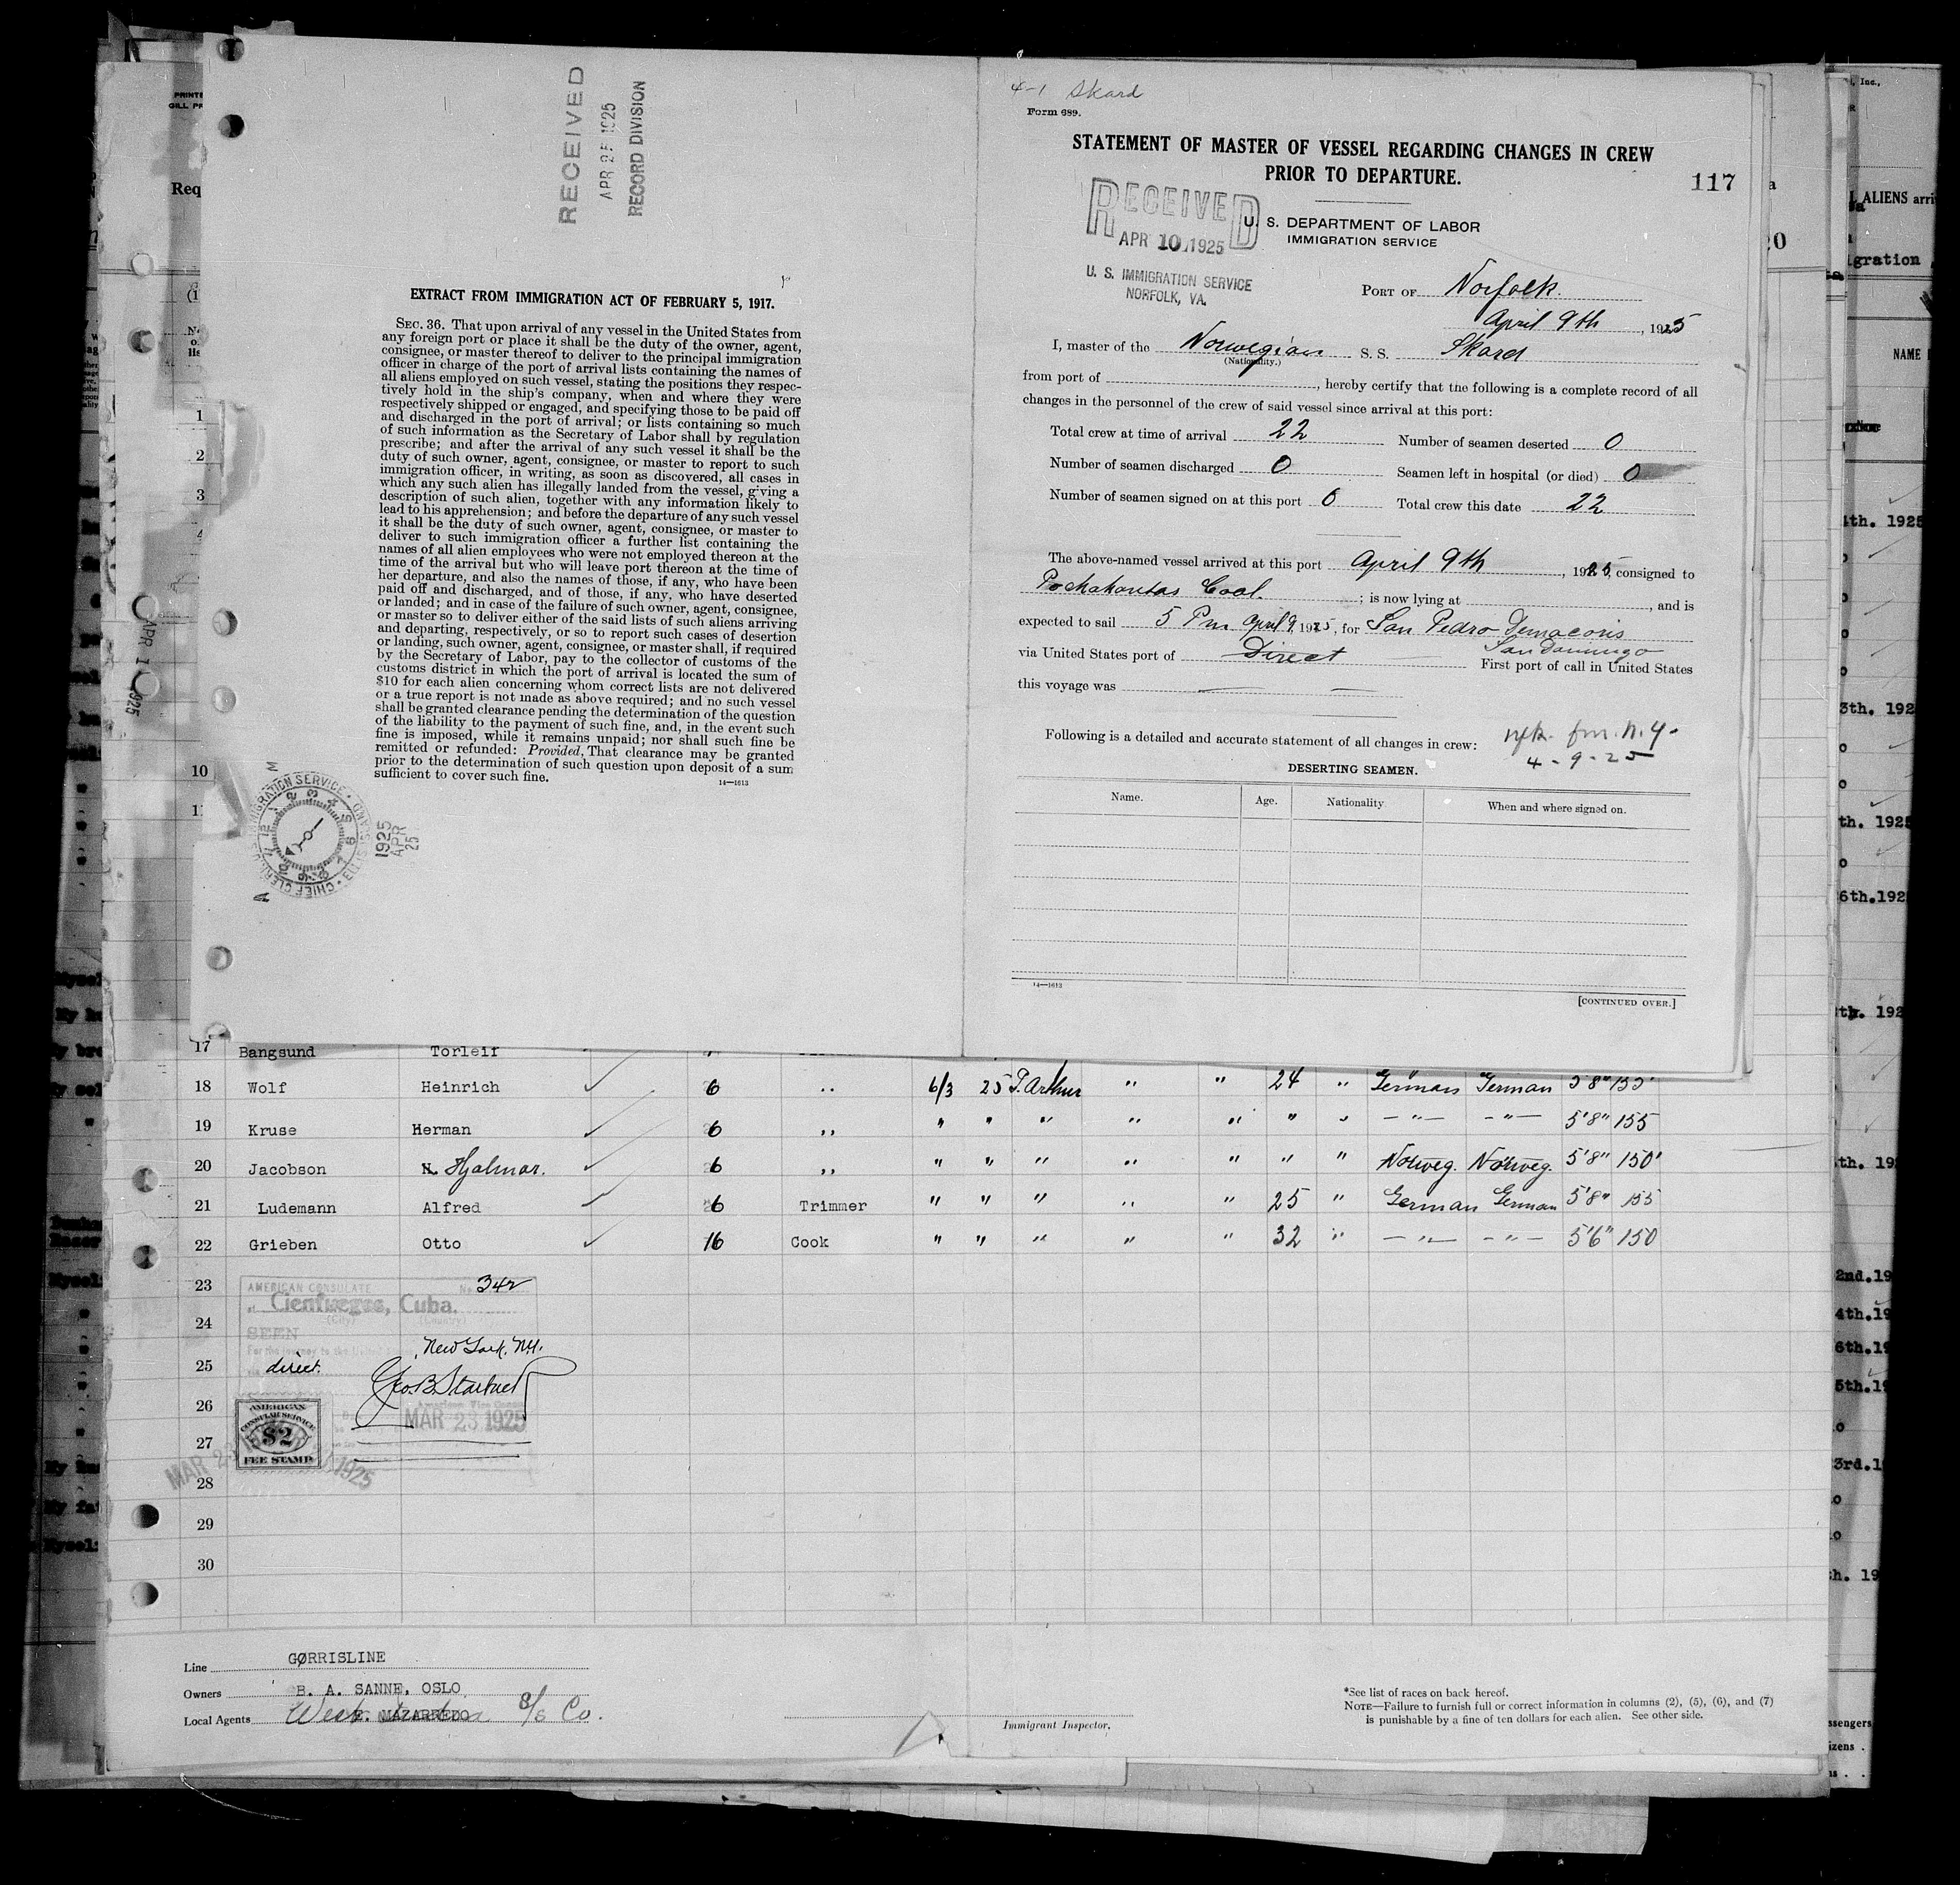 RECEIVED
APR 25 1925
RECORD DIVISION
EXTRACT FROM IMMIGRATION ACT OF FEBRUARY 5, 1917.
SEC. 36. That upon arrival of any vessel in the United States from
any foreign port or place it shall be the duty of the owner, agent,
consignee, or master thereof to deliver to the principal immigration
officer in charge of the port of arrival lists containing the names of
all aliens employed on such vessel, stating the positions they respec-
tively hold in the ship's company, when and where they were
respectively shipped or engaged, and specifying those to be paid off
and discharged in the port of arrival; or lists containing so much
of such information as the Secretary of Labor shall by regulation
prescribe; and after the arrival of any such vessel it shall be the
duty of such owner, agent, consignee, or master to report to such
immigration officer, in writing, as soon as discovered, all cases in
which any such alien has illegally landed from the vessel, giving a
description of such alien, together with any information likely to
lead to his apprehension; and before the departure of any such vessel
it shall be the duty of such owner, agent, consignee, or master to
deliver to such immigration officer a further list containing the
names of all alien employees who were not employed thereon at the
time of the arrival but who will leave port thereon at the time of
her departure, and also the names of those, if any, who have been
paid off and discharged, and of those, if any, who have deserted
or landed; and in case of the failure of such owner, agent, consignee,
or master so to deliver either of the said lists of such aliens arriving
and departing, respectively, or so to report such cases of desertion
or landing, such owner, agent, consignee, or master shall, if required
by the Secretary of Labor, pay to the collector of customs of the
customs district in which the port of arrival is located the sum of
$10 for each alien concerning whom correct lists are not delivered
or a true report is not made as above required; and no such vessel
shall be granted clearance pending the determination of the question
of the liability to the payment of such fine, and, in the event such
fine is imposed, while it remains unpaid; nor shall such fine be
remitted or refunded: Provided, That clearance may be granted
prior to the determination of such question upon deposit of a sum
sufficient to cover such fine.
14—1613
1925
APR
25
4-1 Skard
Form 689.
STATEMENT OF MASTER OF VESSEL REGARDING CHANGES IN CREW
PRIOR TO DEPARTURE.
117
RECEIVED
APR 10 1925
U. S. IMMIGRATION SERVICE
NORFOLK, VA.
U. S. DEPARTMENT OF LABOR
IMMIGRATION SERVICE
PORT OF Norfolk.
April 9th, 1925
I, master of the Norwegian S. S. Skard
(Nationality.)
from port of , hereby certify that the following is a complete record of all
changes in the personnel of the crew of said vessel since arrival at this port:
Total crew at time of arrival 22 Number of seamen deserted 0
Number of seamen discharged 0 Seamen left in hospital (or died) 0
Number of seamen signed on at this port 0 Total crew this date 22
The above-named vessel arrived at this port April 9th, 1925, consigned to
Pochahontas Coal. ; is now lying at , and is
expected to sail 5 Pm April 9, 1925, for San Pedro Demacoris
San Domingo
via United States port of Direct First port of call in United States
this voyage was
Following is a detailed and accurate statement of all changes in crew:
nfk. fm. N.Y.
4-9-25
DESERTING SEAMEN.
Name. Age. Nationality When and where signed on.
14—1613
[CONTINUED OVER.]
17 Bangsund Torleif
18 Wolf Heinrich 6 ,, 6/3 25 P. Arthur " " 24 " German German 5'8" 155
19 Kruse Herman 6 ,, " " " " " " " -"- -"- 5'8" 155
20 Jacobson Hjalmar. 6 ,, " " " " " " " Norweg. Norweg. 5'8" 150
21 Ludemann Alfred 6 Trimmer " " " " " 25 " German German 5'8" 155
22 Grieben Otto 16 Cook " " " " " 32 " -"- -"- 5'6" 150
23
24
25
26
27
28
29
30
AMERICAN CONSULATE No 342
at Cienfuegos, Cuba.
(City) (Country)
SEEN
For the journey to the United
New York, N.Y.
direct.
Geo. B. Starbuck
American Vice Consul
MAR 23 1925
AMERICAN
CONSULAR SERVICE
$2
FEE STAMP
Line GØRRISLINE
Owners B. A. SANNE, OSLO
Local Agents E. MAZARREDO
S/S Co.
Immigrant Inspector.
*See list of races on back hereof.
NOTE—Failure to furnish full or correct information in columns (2), (5), (6), and (7)
is punishable by a fine of ten dollars for each alien. See other side.